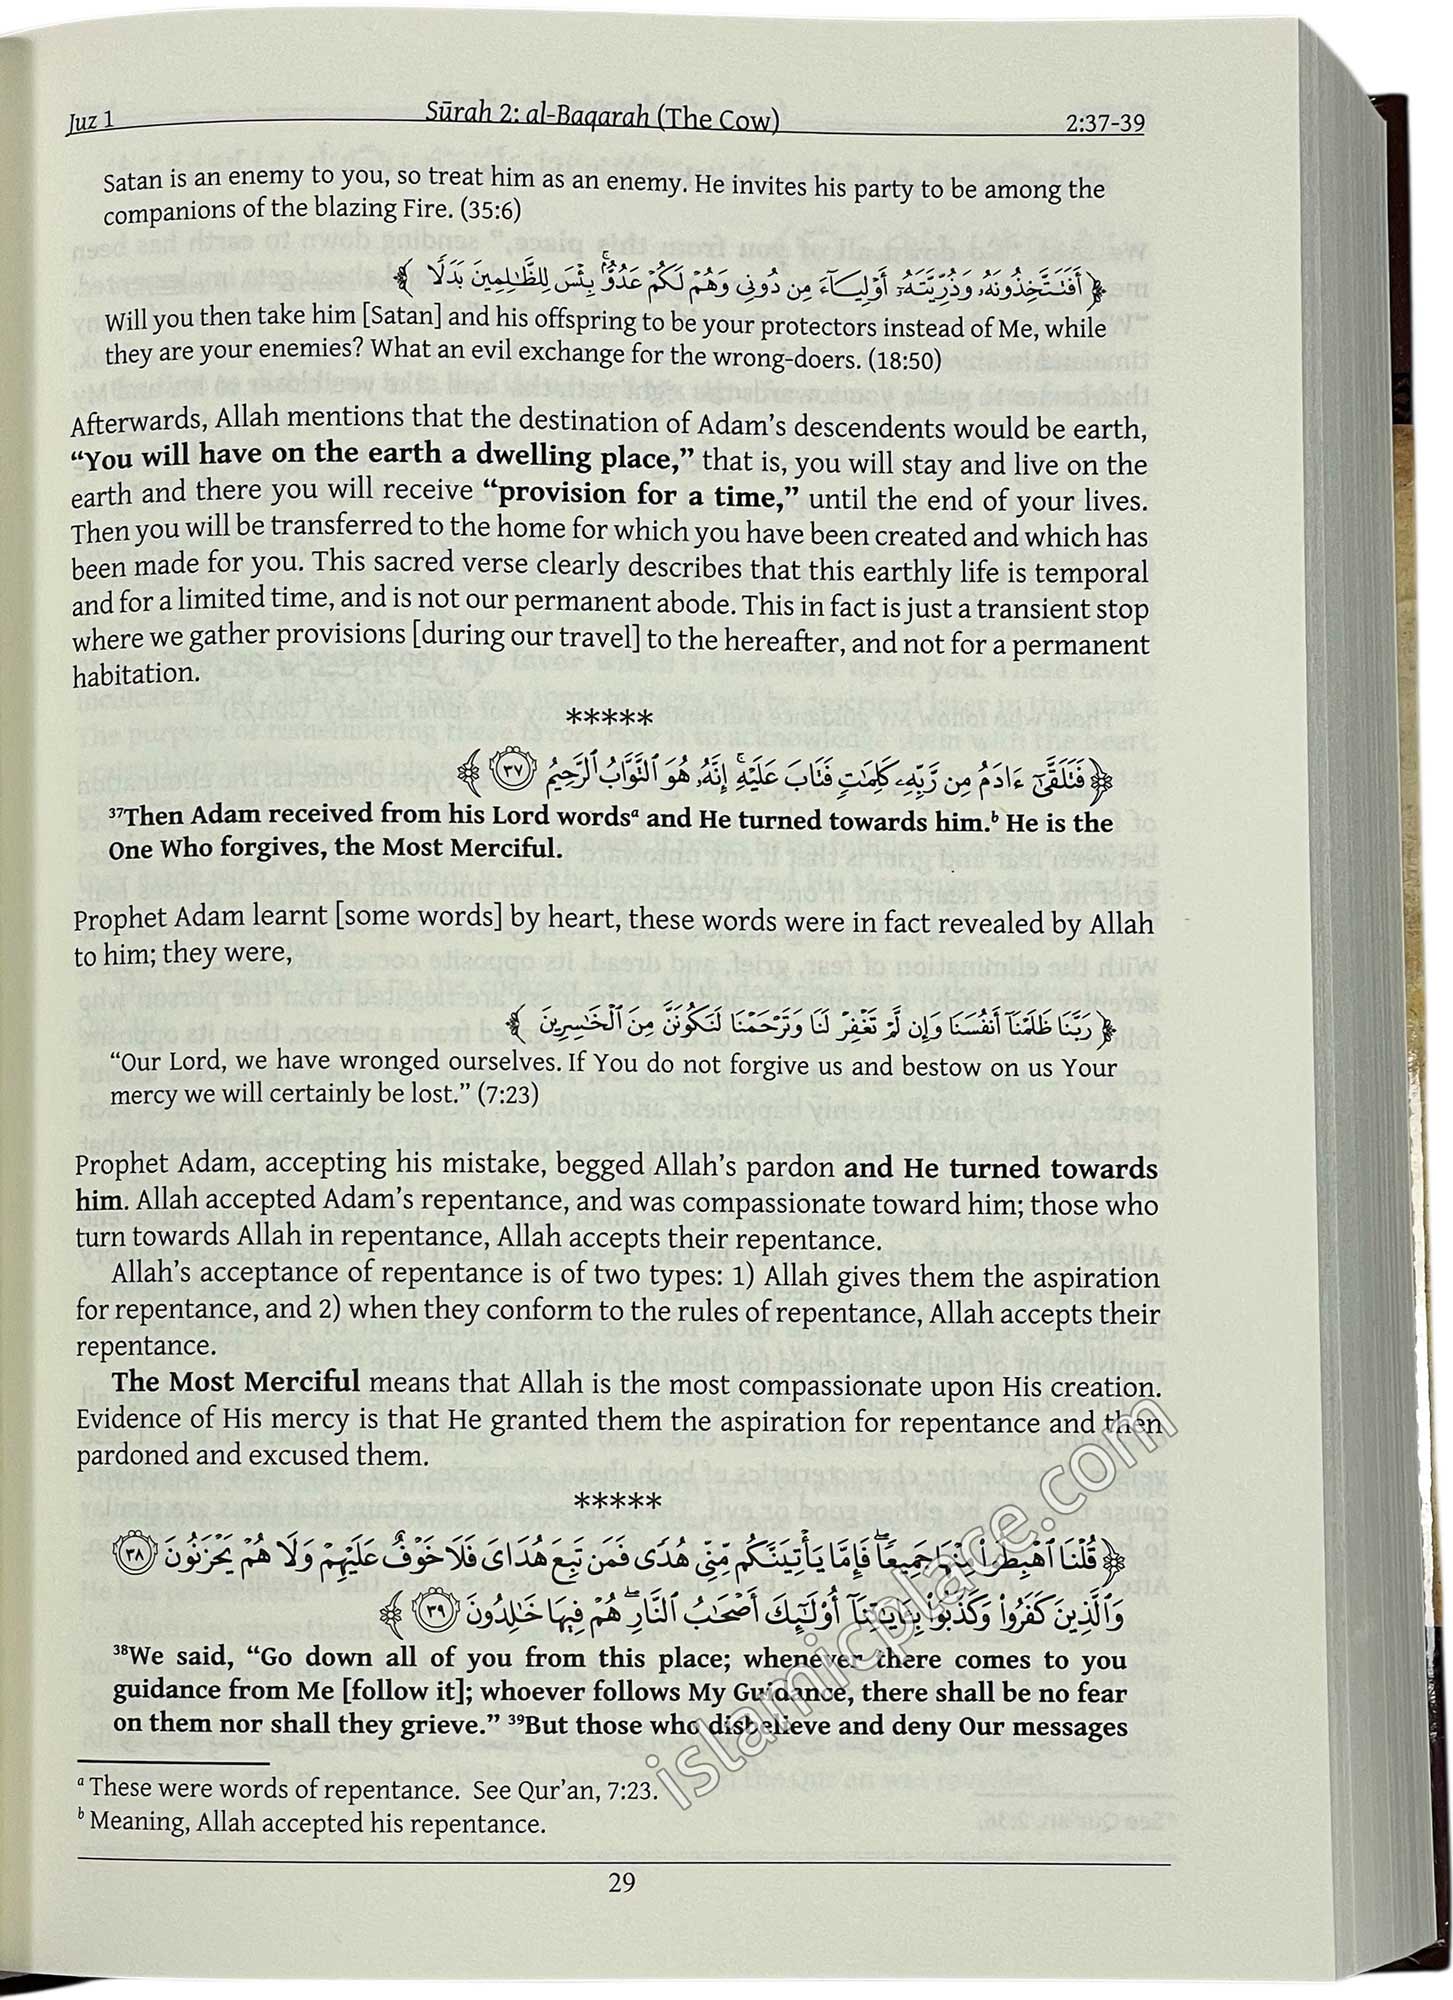 Juz 1 Sūrah 2: al-Baqarah (The Cow) 2:37-39
Satan is an enemy to you, so treat him as an enemy. He invites his party to be among the
companions of the blazing Fire. (35:6)
﴿ أَفَتَتَّخِذُونَهُۥ وَذُرِّيَّتَهُۥٓ أَوْلِيَآءَ مِن دُونِى وَهُمْ لَكُمْ عَدُوٌّۢ ۚ بِئْسَ لِلظَّـٰلِمِينَ بَدَلًا ﴾
Will you then take him [Satan] and his offspring to be your protectors instead of Me, while
they are your enemies? What an evil exchange for the wrong-doers. (18:50)
Afterwards, Allah mentions that the destination of Adam’s descendents would be earth,
“You will have on the earth a dwelling place,” that is, you will stay and live on the
earth and there you will receive “provision for a time,” until the end of your lives.
Then you will be transferred to the home for which you have been created and which has
been made for you. This sacred verse clearly describes that this earthly life is temporal
and for a limited time, and is not our permanent abode. This in fact is just a transient stop
where we gather provisions [during our travel] to the hereafter, and not for a permanent
habitation.
*****
﴿ فَتَلَقَّىٰٓ ءَادَمُ مِن رَّبِّهِۦ كَلِمَـٰتٍ فَتَابَ عَلَيْهِ ۚ إِنَّهُۥ هُوَ ٱلتَّوَّابُ ٱلرَّحِيمُ ٣٧ ﴾
³⁷Then Adam received from his Lord wordsᵃ and He turned towards him.ᵇ He is the
One Who forgives, the Most Merciful.
Prophet Adam learnt [some words] by heart, these words were in fact revealed by Allah
to him; they were,
﴿ رَبَّنَا ظَلَمْنَآ أَنفُسَنَا وَإِن لَّمْ تَغْفِرْ لَنَا وَتَرْحَمْنَا لَنَكُونَنَّ مِنَ ٱلْخَـٰسِرِينَ ﴾
“Our Lord, we have wronged ourselves. If You do not forgive us and bestow on us Your
mercy we will certainly be lost.” (7:23)
Prophet Adam, accepting his mistake, begged Allah’s pardon and He turned towards
him. Allah accepted Adam’s repentance, and was compassionate toward him; those who
turn towards Allah in repentance, Allah accepts their repentance.
Allah’s acceptance of repentance is of two types: 1) Allah gives them the aspiration
for repentance, and 2) when they conform to the rules of repentance, Allah accepts their
repentance.
The Most Merciful means that Allah is the most compassionate upon His creation.
Evidence of His mercy is that He granted them the aspiration for repentance and then
pardoned and excused them.
*****
﴿ قُلْنَا ٱهْبِطُوا۟ مِنْهَا جَمِيعًا ۖ فَإِمَّا يَأْتِيَنَّكُم مِّنِّى هُدًى فَمَن تَبِعَ هُدَاىَ فَلَا خَوْفٌ عَلَيْهِمْ وَلَا هُمْ يَحْزَنُونَ ٣٨
وَٱلَّذِينَ كَفَرُوا۟ وَكَذَّبُوا۟ بِـَٔايَـٰتِنَآ أُو۟لَـٰٓئِكَ أَصْحَـٰبُ ٱلنَّارِ ۖ هُمْ فِيهَا خَـٰلِدُونَ ٣٩ ﴾
³⁸We said, “Go down all of you from this place; whenever there comes to you
guidance from Me [follow it]; whoever follows My Guidance, there shall be no fear
on them nor shall they grieve.” ³⁹But those who disbelieve and deny Our messages
ᵃ These were words of repentance. See Qur’an, 7:23.
ᵇ Meaning, Allah accepted his repentance.
29
islamicplace.com